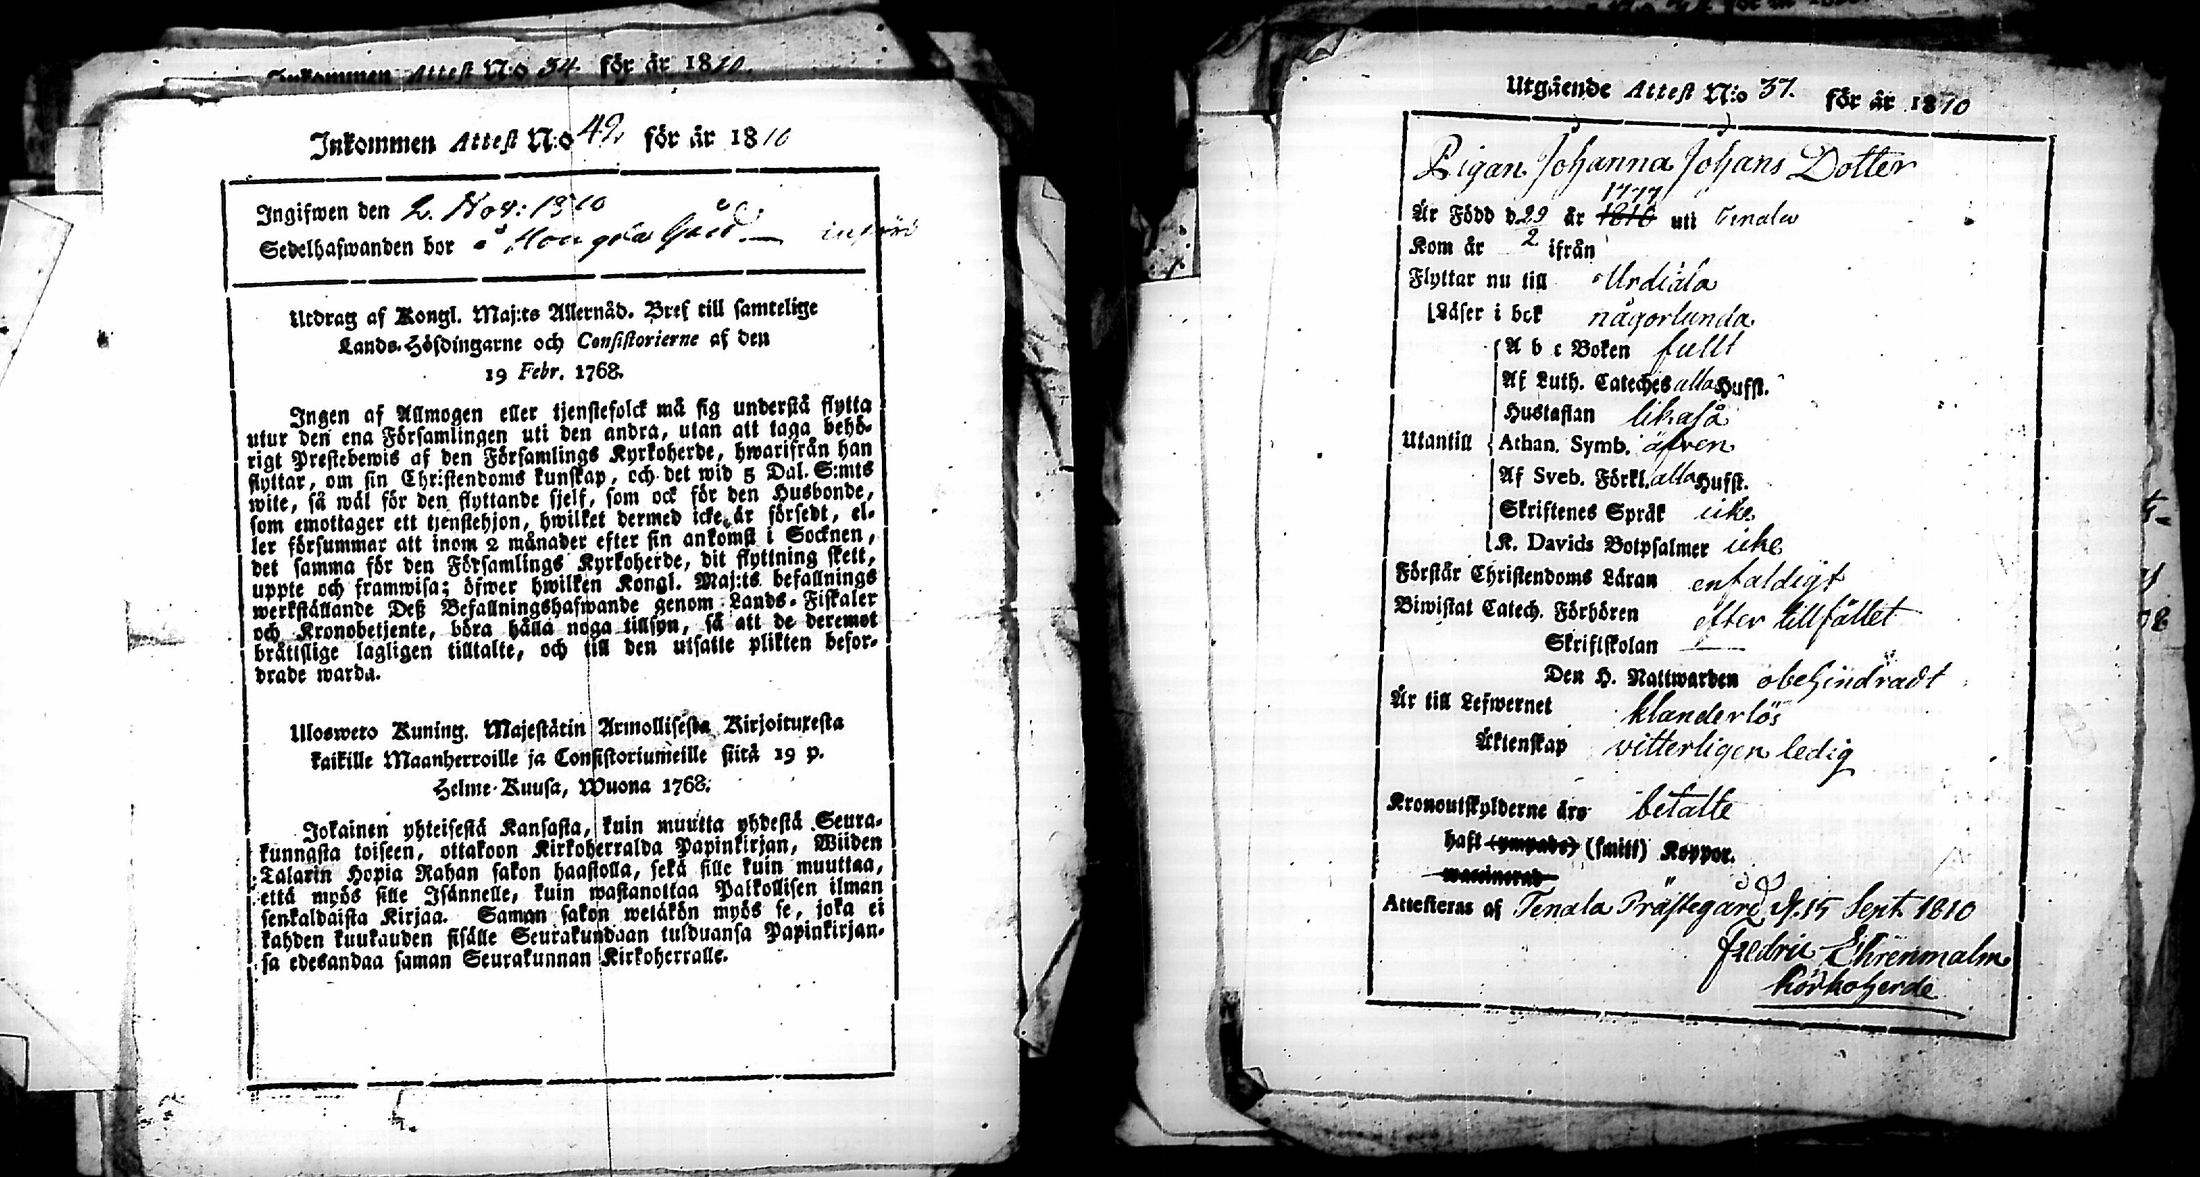 Inkommen Attest N:o 54. för år 1810.
Inkommen Attest N:o 42 för år 1810
Ingifwen den 2. Nov: 1810
Sedelhafwanden bor å gård
Utdrag af Kongl. Maj:ts Allernåd. Bref till samtelige
Lands-Höfdingarne och Consistorierne af den
19 Febr. 1768.
Ingen af Allmogen eller tjenstefolck må sig understå flytta
utur den ena Församlingen uti den andra, utan att taga behö-
rigt Prestebewis af den Församlings Kyrkoherde, hwarifrån han
flyttar, om sin Christendoms kunskap, och det wid 5 Dal. S:mts
wite, så wäl för den flyttande sjelf, som ock för den Husbonde,
som emottager ett tjenstehjon, hwilket dermed icke är försedt, el-
ler försummar att inom 2 månader efter sin ankomst i Socknen,
det samma för den Församlings Kyrkoherde, dit flyttning skett,
uppte och framwisa; öfwer hwilken Kongl. Maj:ts befallnings
werkställande Deß Befallningshafwande genom Lands-Fiskaler
och Kronobetjente, böra hålla noga tillsyn, så att de deremot
brättslige lagligen tilltalte, och till den utsatte plikten befor-
drade warda.
Ulosweto Kuning. Majestätin Armollisesta Kirjoituxesta
kaikille Maanherroille ja Consistoriumeille siitä 19 p.
Helme-Kuusa, Wuona 1768.
Jokainen yhteisestä Kansasta, kuin muutta yhdestä Seura-
kunnasta toiseen, ottakoon Kirkoherralda Papinkirjan, Wiiden
Talarin Hopia Rahan sakon haastolla, sekä sille kuin muuttaa,
että myös sille Isännelle, kuin wastanottaa Palkollisen ilman
senkaldaista Kirjaa. Saman sakon wetäkön myös se, joka ei
kahden kuukauden sisälle Seurakundaan tulduansa Papinkirjan-
sa edesandaa saman Seurakunnan Kirkoherralle.
Utgående Attest N:o 37. för år 1810
Pigan Johanna Johans Dotter
1777
Är Född d 29/2 år 1810 uti Tenala
Kom år ifrån
Flyttar nu till Urdiala
Läser i bok någorlunda
A b c Boken fullt
Af Luth. Cateches alla Hufst.
Hustaflan likaså
Utantill Athan. Symb. äfven
Af Sveb. Förkl. alla Hufst.
Skriftenes Språk icke
K. Davids Botpsalmer icke
Förstår Christendoms Läran enfaldigt
Biwistat Catech. Förhören efter tillfället
Skriftskolan
Den H. Nattwarden obehindradt
Är till Lefwernet klanderlös
Äktenskap vitterligen ledig
Kronoutskylderne äro betalte
haft (ympade) (smitt) Koppor.
waccinerad
Attesteras af Tenala Prästegård d. 15 Sept. 1810
Fredric Ehrenmalm
Körkoherde